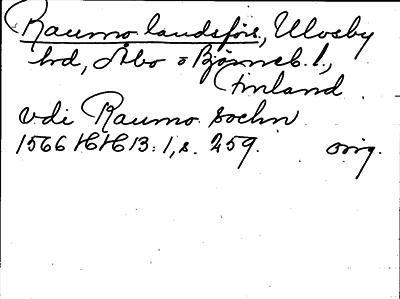 Raumo landsförs, Ulvsby
hd, Åbo o Björneb. l.,
Finland
vdi Raumo sochn
1566 HH 13: 1, s. 259. orig.